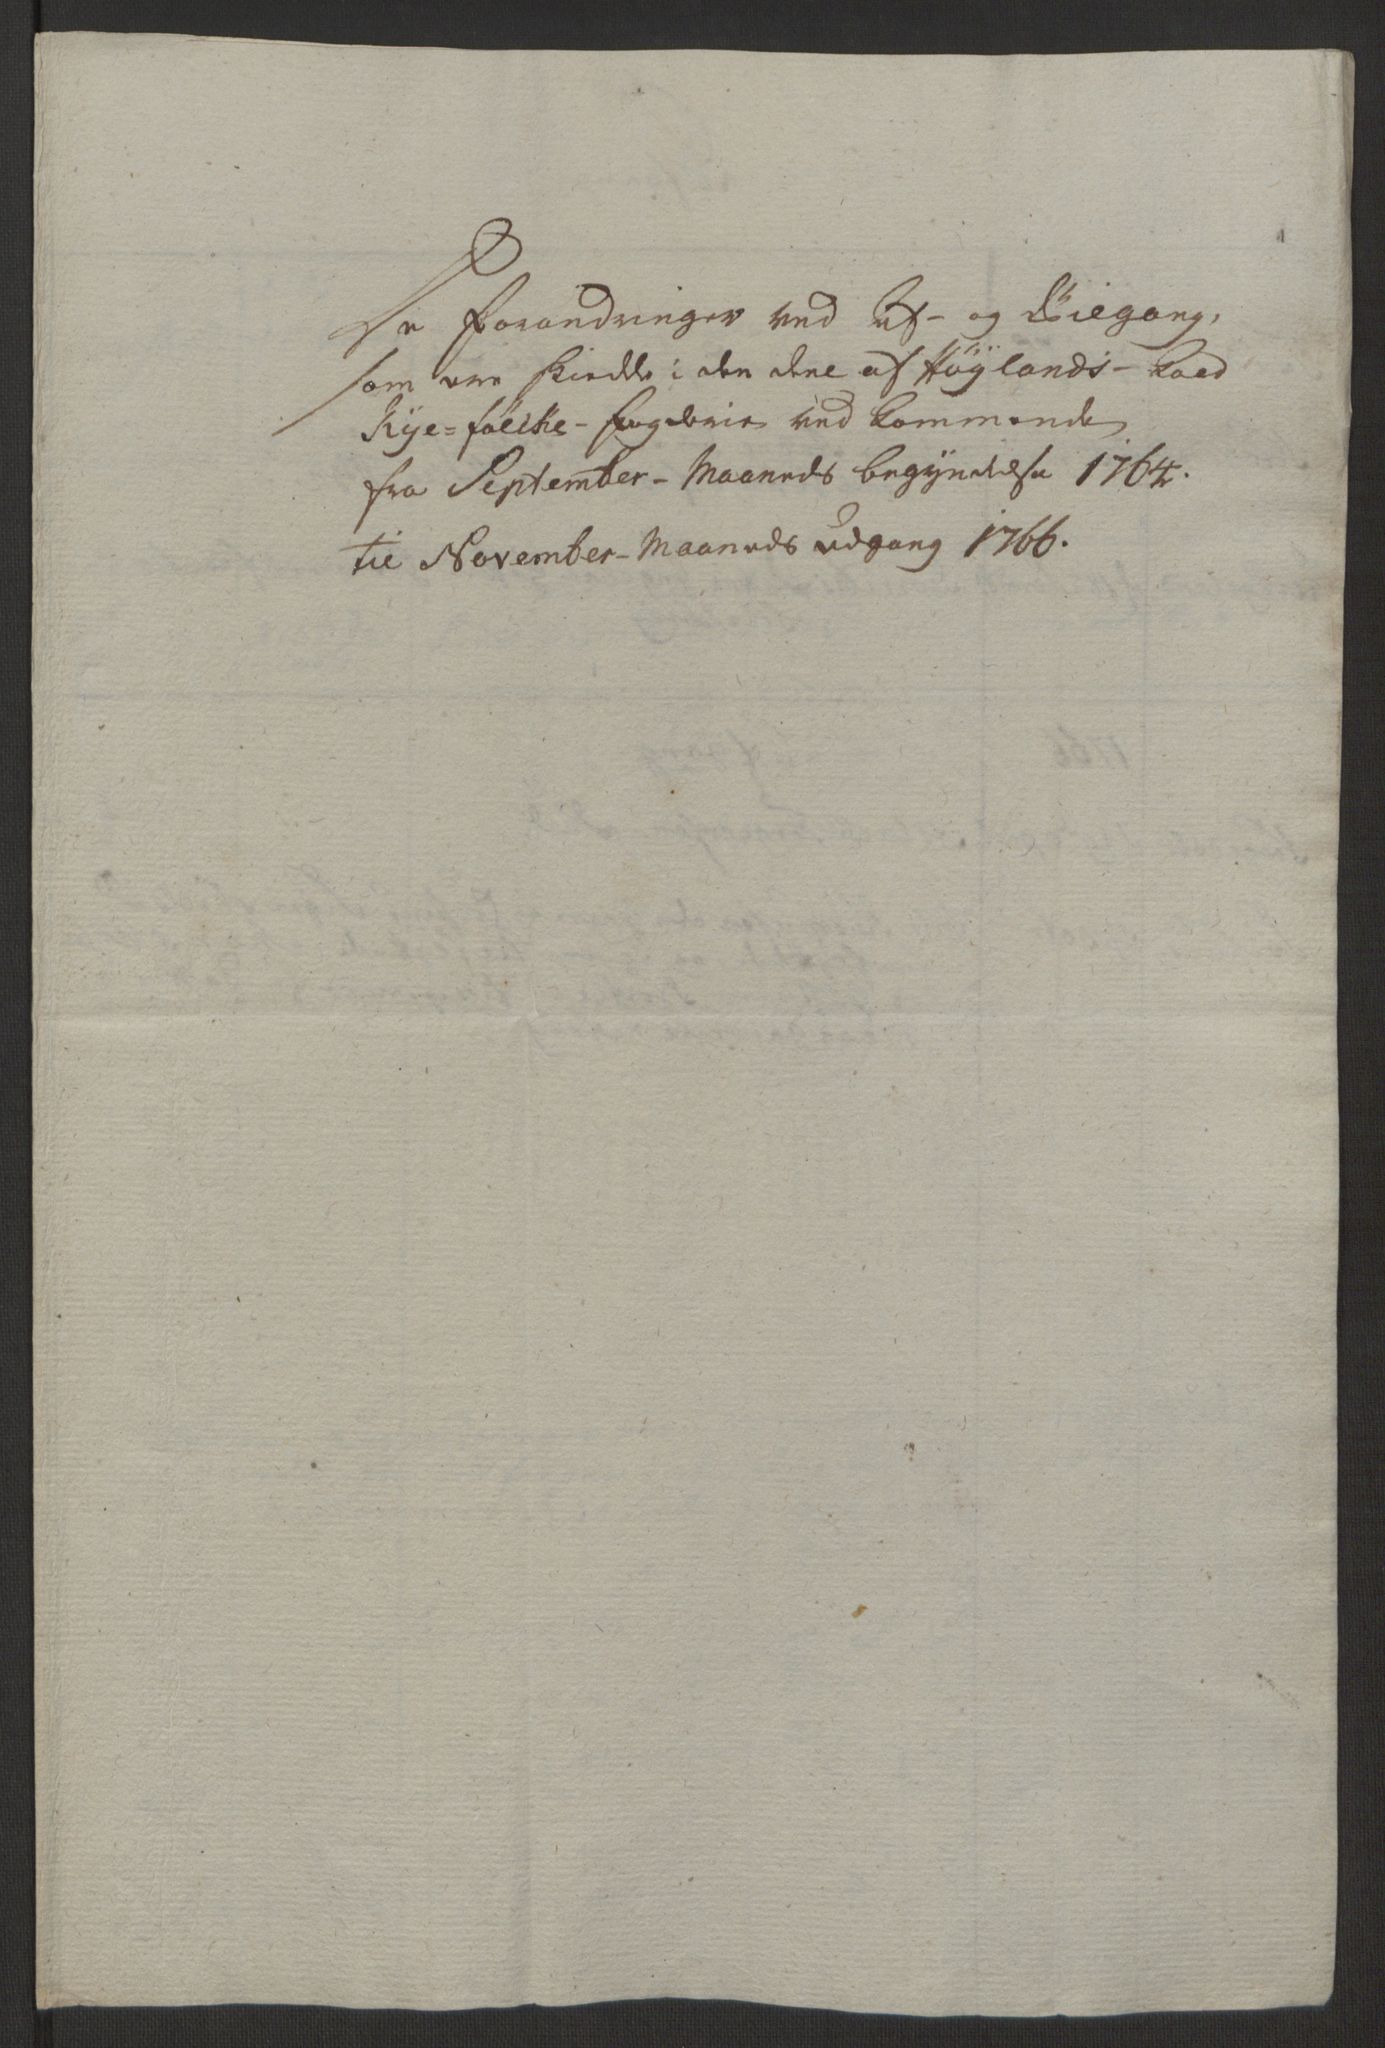 De forandringer ved af- og Tilgang,
som ere skedde i den deel af Höylands- kald
Rye-fölcke- fogderie ved kommende
fra September- Maaneds begyndelse 1764.
til November- Maaneds udgang 1766.